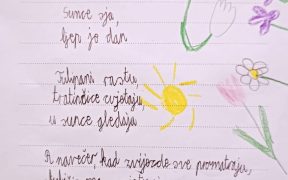 Sunce sja,
ljep je dan
Tulipani rastu,
tratinčice cvjetaju,
u sunce gledaju
A navečer, kad zvijezde sve promatraju,